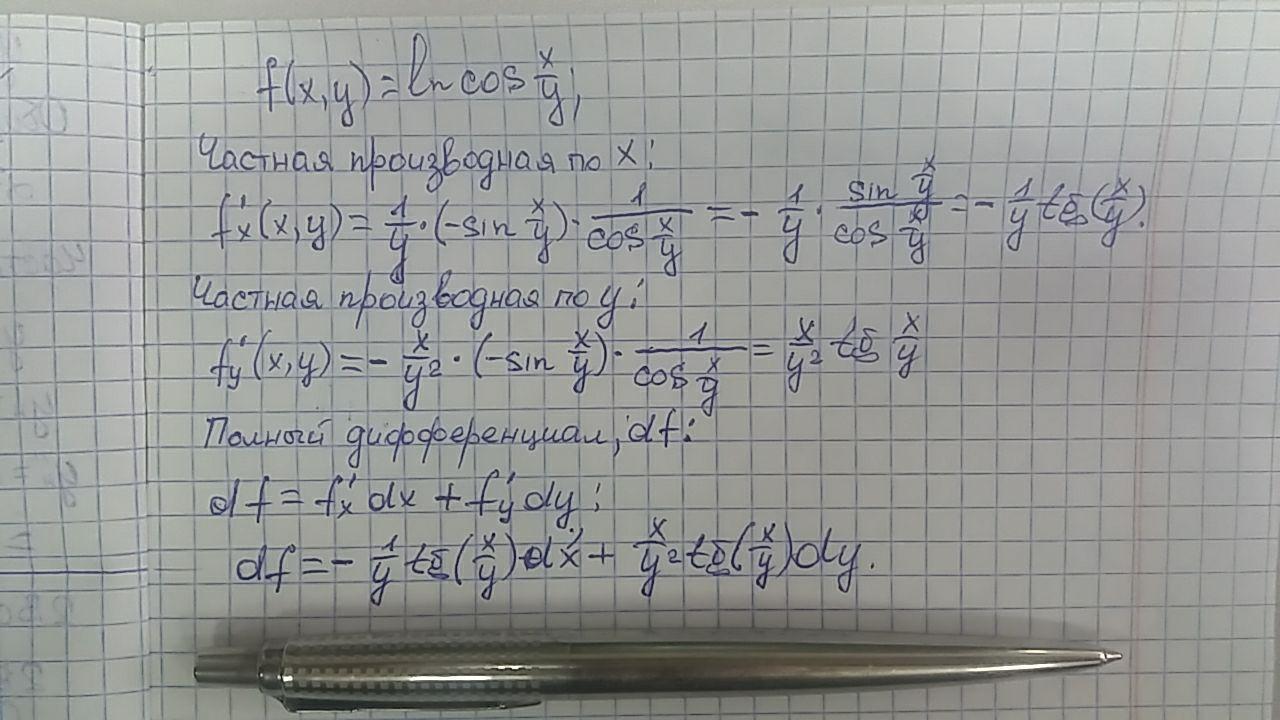 f(x,y)=ln cos x/y;
Частная производная по x:
f'x(x,y)= 1/y · (-sin x/y) · 1/(cos x/y) = - 1/y · (sin x/y)/(cos x/y) = - 1/y tg(x/y).
Частная производная по y:
f'y(x,y)= - x/y² · (-sin x/y) · 1/(cos x/y) = x/y² tg x/y
Полный дифференциал, df:
df = f'x dx + f'y dy;
df = - 1/y tg(x/y) · dx + x/y² tg(x/y) dy.